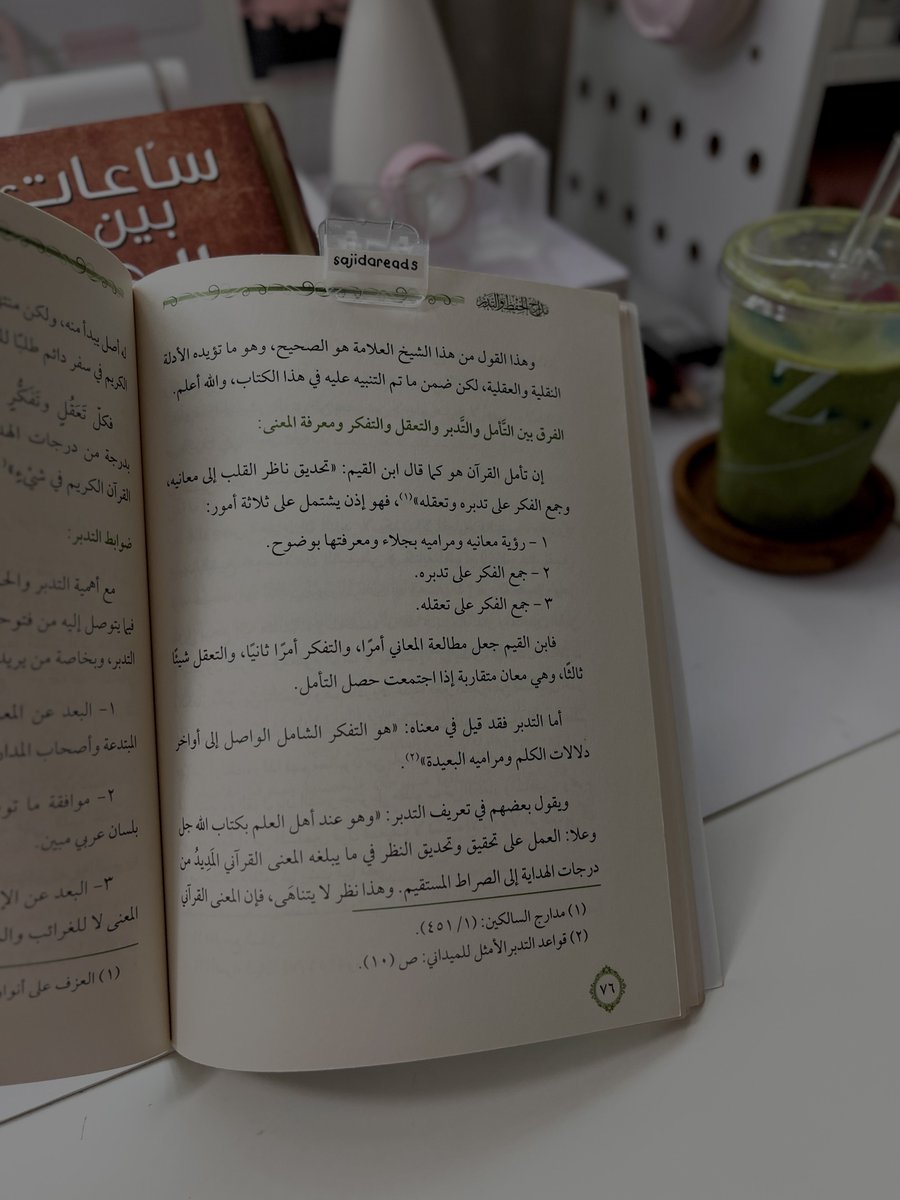 ساعات
بين
sajidareads
مدارج الحفظ والتدبر
وهذا القول من هذا الشيخ العلامة هو الصحيح، وهو ما تؤيده الأدلة
النقلية والعقلية، لكن ضمن ما تم التنبيه عليه في هذا الكتاب، والله أعلم.
الفرق بين التَّأمل والتَّدبر والتعقل والتفكر ومعرفة المعنى:
إن تأمل القرآن هو كما قال ابن القيم: «تحديق ناظر القلب إلى معانيه،
وجمع الفكر على تدبره وتعقله»(١)، فهو إذن يشتمل على ثلاثة أمور:
١ - رؤية معانيه ومراميه بجلاء ومعرفتها بوضوح.
٢ - جمع الفكر على تدبره.
٣ - جمع الفكر على تعقله.
فابن القيم جعل مطالعة المعاني أمرًا، والتفكر أمرًا ثانيًا، والتعقل شيئًا
ثالثًا، وهي معان متقاربة إذا اجتمعت حصل التأمل.
أما التدبر فقد قيل في معناه: «هو التفكر الشامل الواصل إلى أواخر
دلالات الكلم ومراميه البعيدة»(٢).
ويقول بعضهم في تعريف التدبر: «وهو عند أهل العلم بكتاب الله جل
وعلا: العمل على تحقيق وتحديق النظر في ما يبلغه المعنى القرآني المَدِيدُ من
درجات الهداية إلى الصراط المستقيم. وهذا نظر لا يتناهَى، فإن المعنى القرآني
(١) مدارج السالكين: (١/ ٤٥١).
(٢) قواعد التدبر الأمثل للميداني: ص (١٠).
٧٦
له أصل يبدأ منه، ولكن
الكريم في سفر دائم طلبًا
فكلّ تَعَقُّلٍ وتَفَكُّرٍ
بدرجة من درجات
القرآن الكريم في شيْءٍ»
ضوابط التدبر:
مع أهمية التدبر
فيما يتوصل إليه من
التدبر، وبخاصة من يريد
١- البعد عن
المبتدعة وأصحاب
٢- موافقة ما
بلسان عربي مبين.
٣- البعد عن
المعنى لا للغرائب
(١) العزف على
Z